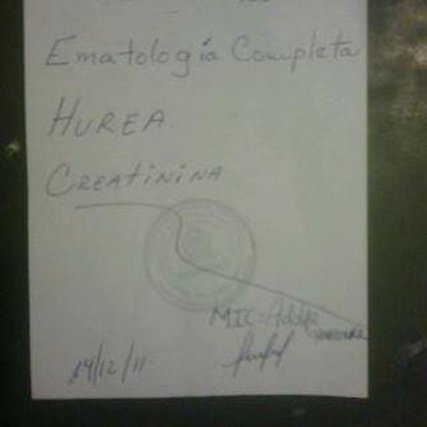 Ematología Completa
HUREA
CREATININA
MIC
14/12/11